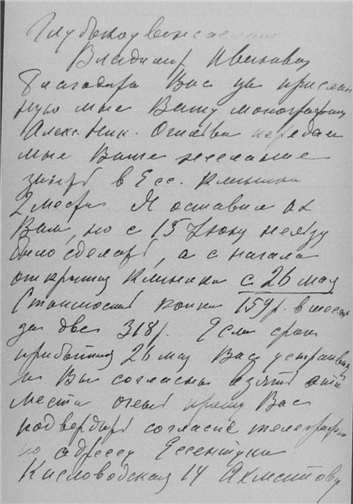 Глубокоуважаемый
Владимир Иванович
Благодарю Вас за прислан
ную мне Вашу монографию
Алекс. Ник. передал
мне Ваше желание
в Есс. клинике
2 места. Я оставил их
Вам, но с 15 нельзя
было сделать, а с начала
открытия клиники с 26 мая
Стоимость койки 159 р. в месяц
за две 318 р. Если срок
прибытия 26 мая Вас устраивает
и Вы согласны взять эти
места очень прошу Вас
подтвердить согласие телеграфом
по адресу Ессентуки
Кисловодская 14